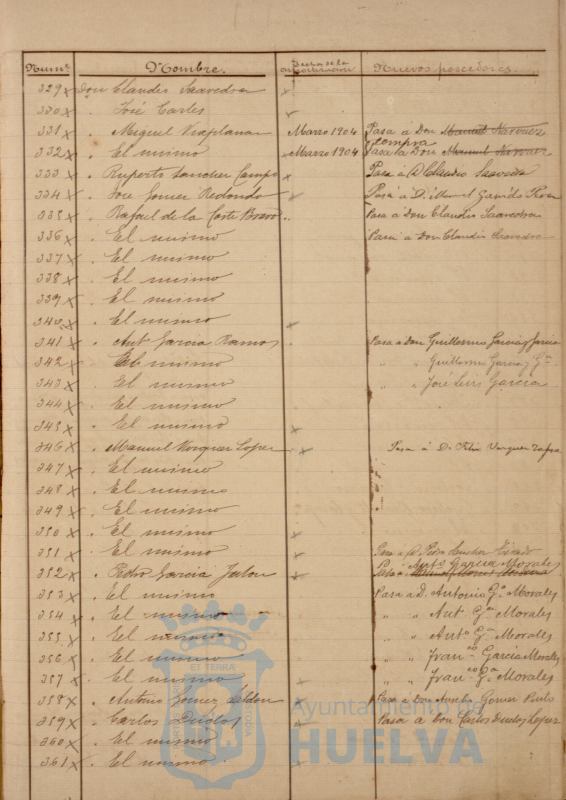 Num.º Nombre. Fecha de la Nuevos poseedores.
329 Don Claudio Saavedra
330 " José Cartes
331 " Miguel Marzo 1904 Pasa á Don Manuel Narvaez
compra
332 " El mismo Marzo 1904 Pasa á Don Manuel Narvaez
333 " Ruperto Sanchez Campo Pasa á D. Claudio Saavedra
334 " José Gomez Redondo Pasa á D. Manuel Garrido
335 " Rafael de la Corte Bravo Pasa á Don Claudio Saavedra
336 " El mismo Pasa á Don Claudio Saavedra
337 " El mismo
338 " El mismo
339 " El mismo
340 " El mismo
341 " Ant. Garcia Ramos Pasa á Don Guillermo Garcia y Garcia
342 " El mismo " " Guillermo Garcia y G.ª
343 " El mismo " " José Luis Garcia
344 " El mismo
345 " El mismo
346 " Manuel Vazquez Lopez Pasa á D. Felix Vazquez
347 " El mismo
348 " El mismo
349 " El mismo
350 " El mismo
351 " El mismo Pasa á D. Pedro Sanchez
Ant.º Garcia Morales
352 " Pedro Garcia Pasa á
353 " El mismo Pasa á D. Antonio G.ª Morales
354 " El mismo " " Ant. G.ª Morales
355 " El mismo " " Ant.º G.ª Morales
356 " El mismo " " Fran.co Garcia Morales
357 " El mismo " " Fran.co G.ª Morales
358 " Antonio Gomez Pasa á Don Gomez
359 " Carlos Duclos Pasa á Don Carlos Duclos Lopez
360 " El mismo
361 " El mismo
Ayuntamiento de
HUELVA